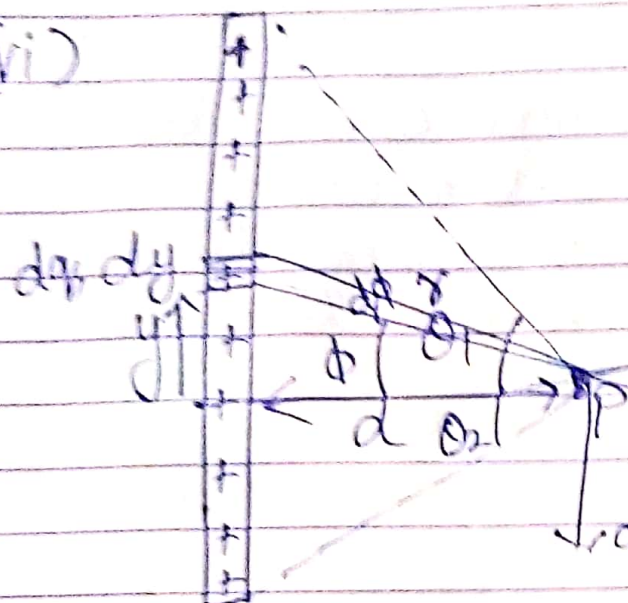 vi)
+
+
+
+
dq dy +
dϕ r
y↑ + θ₁
ϕ
+
d θ₂ P
+
+
+